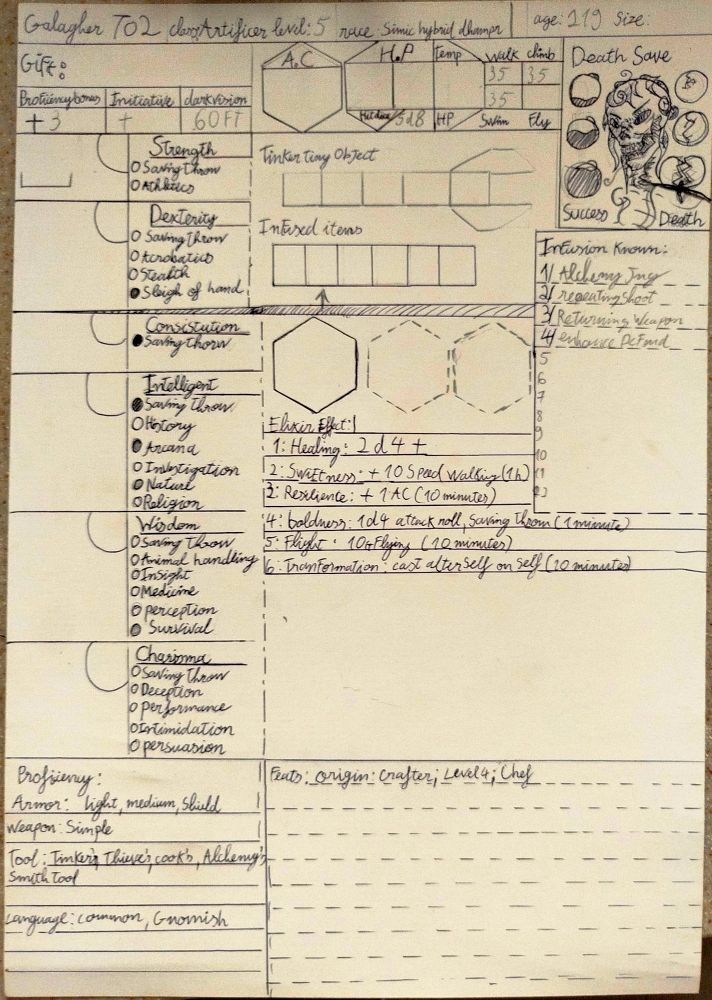 Galagher TO2 class: Artificer level: 5 race: Simic hybrid dhampr age: 219 Size:
Gift:
Proficiency bonus Initiative darkvision
+3 + 60 FT
A.C H.P temp walk climb
35 35
35
Hit dice 5d8 HP Swim Fly
Death Save
Success Death
Strength
Saving Throw
Athletics
Dexterity
Saving Throw
Acrobatics
Stealth
Sleigh of hand
Consistution
Saving Thorw
Intelligent
Saving throw
History
Arcana
Investigation
Nature
Religion
Wisdom
Saving Throw
Animal handling
Insight
Medicine
perception
Survival
Charisma
Saving Throw
Deception
performance
Intimidation
persuasion
Tinker tiny Object
Infused items
Infusion Known:
1/ Alchemy Jug
2/ repeating shoot
3/ Returning Weapon
4/
5
6
7
8
9
10
11
12
Elixir Effect:
1: Healing: 2d4 +
2: Swiftness: +10 Speed Walking (1h)
3: Resiliente: +1 AC (10 minutes)
4: boldness: 1d4 attack roll, Saving throw (1 minute)
5: Flight: 10 Flying (10 minutes)
6: Tranformation: cast alterSelf on Self (10 minutes)
Profiiency:
Armor: light, medium, Shield
Weapon: Simple
Tool: Tinker's, Thieve's, cook's, Alchemy's
Smith Tool
Language: common, Gnomish
Feats: origin: crafter; Level 4; Chef